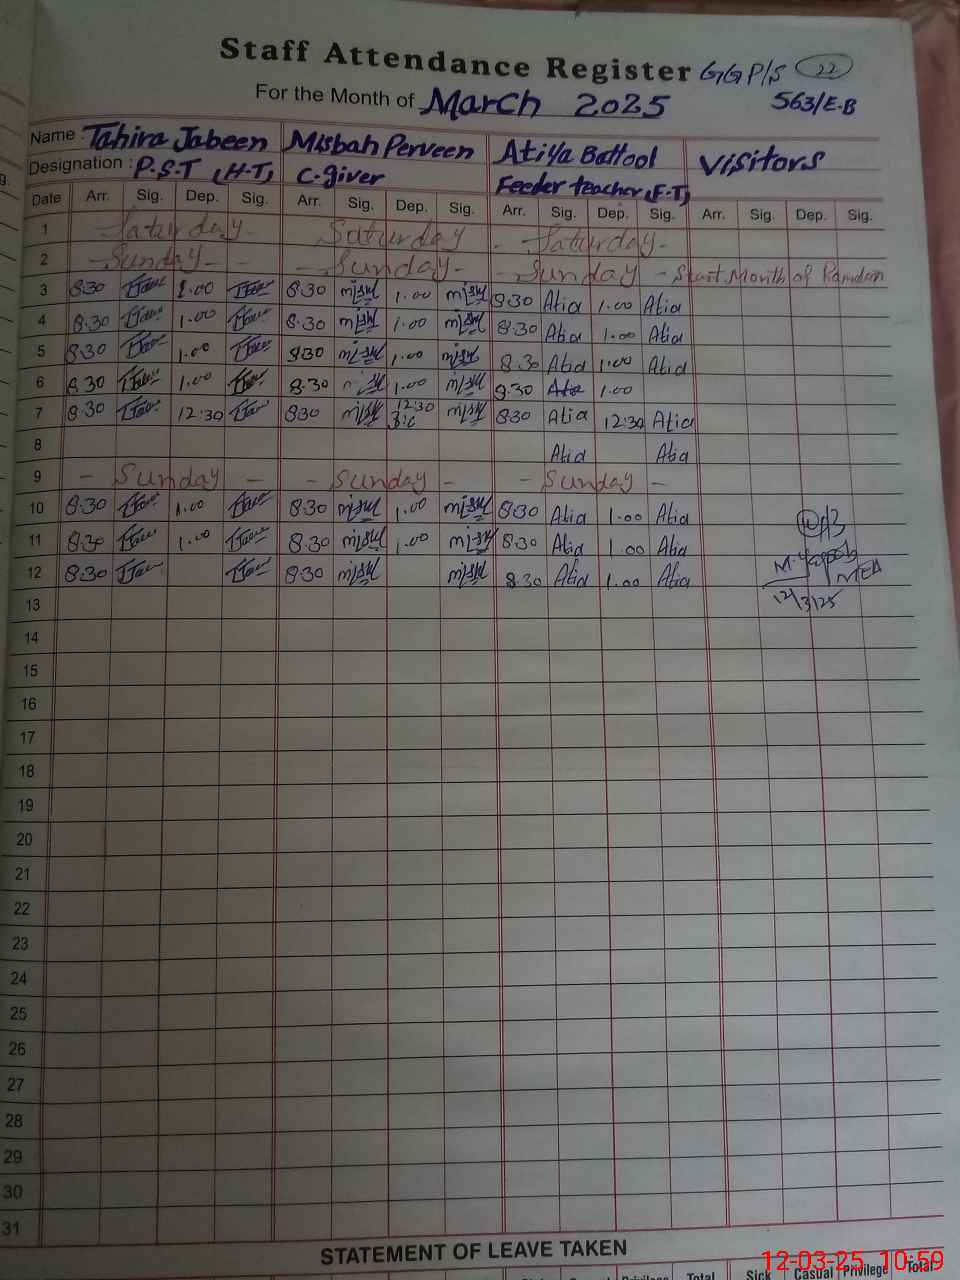 Staff Attendance Register GGP/S 22
For the Month of March 2025 563/E-B
Name : Tahira Jabeen Misbah Perveen Atiya Battool Visitors
Designation : P.S.T (H.T) C.giver Feeder teacher (F.T)
Date Arr. Sig. Dep. Sig. Arr. Sig. Dep. Sig. Arr. Sig. Dep. Sig. Arr. Sig. Dep. Sig.
1 Saturday - Saturday - Saturday -
2 - Sunday - - - Sunday - - Sunday - Start Month of Ramdan
3 8:30 1.00 8:30 1.00 8:30 Atia 1.00 Atia
4 8.30 1.00 8.30 1.00 8:30 Atia 1.00 Atia
5 8:30 1.00 8:30 1.00 8:30 Atia 1:00 Atia
6 8.30 1.00 8.30 1.00 8.30 1.00
7 8:30 12:30 8:30 12:30 8:30 Atia 12:30 Atia
8 Atia Atia
9 - Sunday - - Sunday - - Sunday -
10 8:30 1.00 8:30 1.00 8:30 Atia 1.00 Atia
11 8:30 1.00 8:30 1.00 8:30 Atia 1.00 Atia
12 8:30 8:30 8.30 Atia 1.00 Atia
MEA
12/3/25
13
14
15
16
17
18
19
20
21
22
23
24
25
26
27
28
29
30
31
STATEMENT OF LEAVE TAKEN
Total Sick Casual Privilege Total
12-03-25 10:59